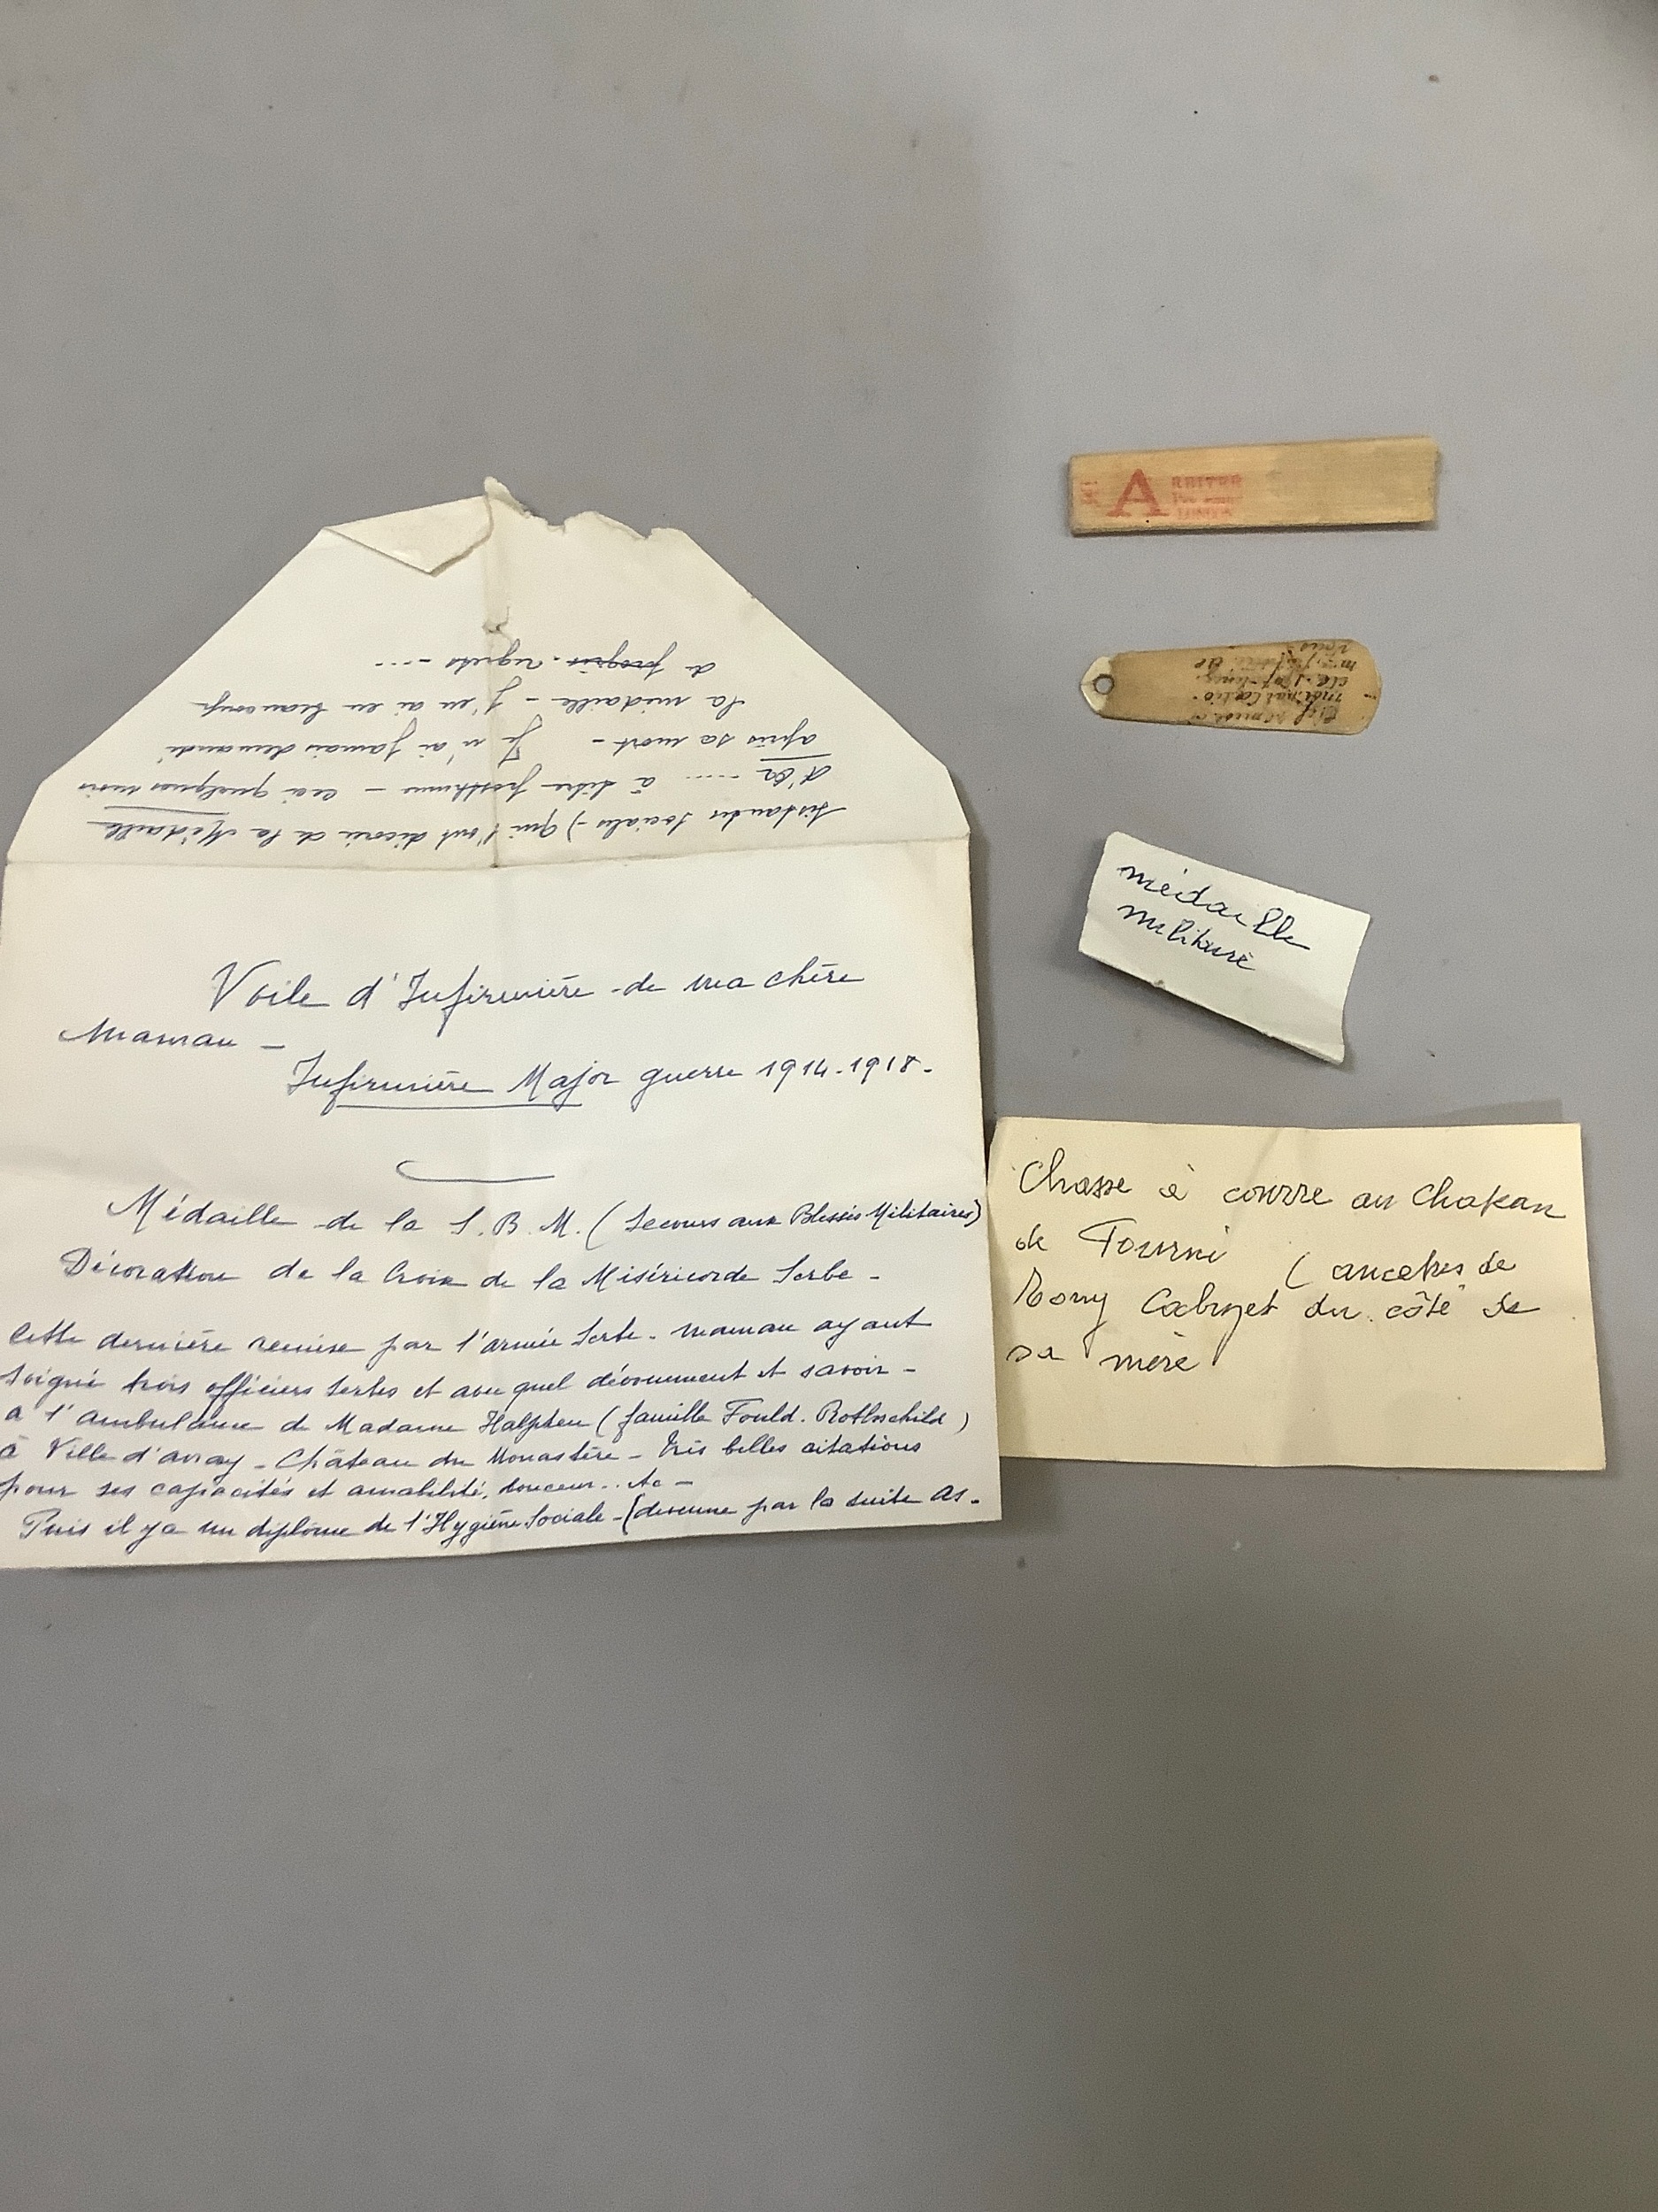 Voile d'Infirmière de ma chère
Maman –
Infirmière Major guerre 1914-1918.
Médaille de la S.B.M. (Secours aux Blessés Militaires)
Décoration de la Croix de la Miséricorde Serbe –
Cette dernière remise par l'armée Serbe. maman ayant
soigné trois officiers serbes et avec quel dévouement et savoir –
à l'ambulance de Madame Halphen (famille Fould. Rothschild)
à Ville d'avray – Château du Monastère – très belles citations
pour ses capacités et amabilité, douceur.. etc –
Puis il y a un diplôme de l'Hygiène Sociale – (devenue par la suite As-
sistantes sociales –) qui l'ont décorée de la Médaille
d'Or ..... à titre posthume – ceci quelques mois
après sa mort – Je n'ai jamais demandé
la médaille – j'en ai eu beaucoup
de regrets – ....
A RBITER
LONDON
médaille
militaire
Chasse à courre au Chateau
de Tourni (ancetres de
Romy Cabuzet du côté de
sa mère